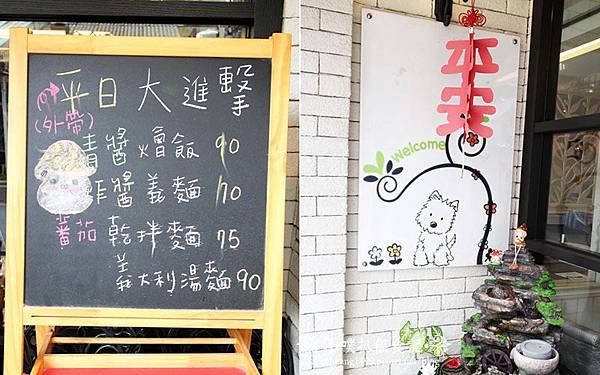 平日大進擊
(外帶)
青醬燴飯 90
炸醬義麵 70
番茄 乾拌麵 75
義大利湯麵 90
平安
welcome